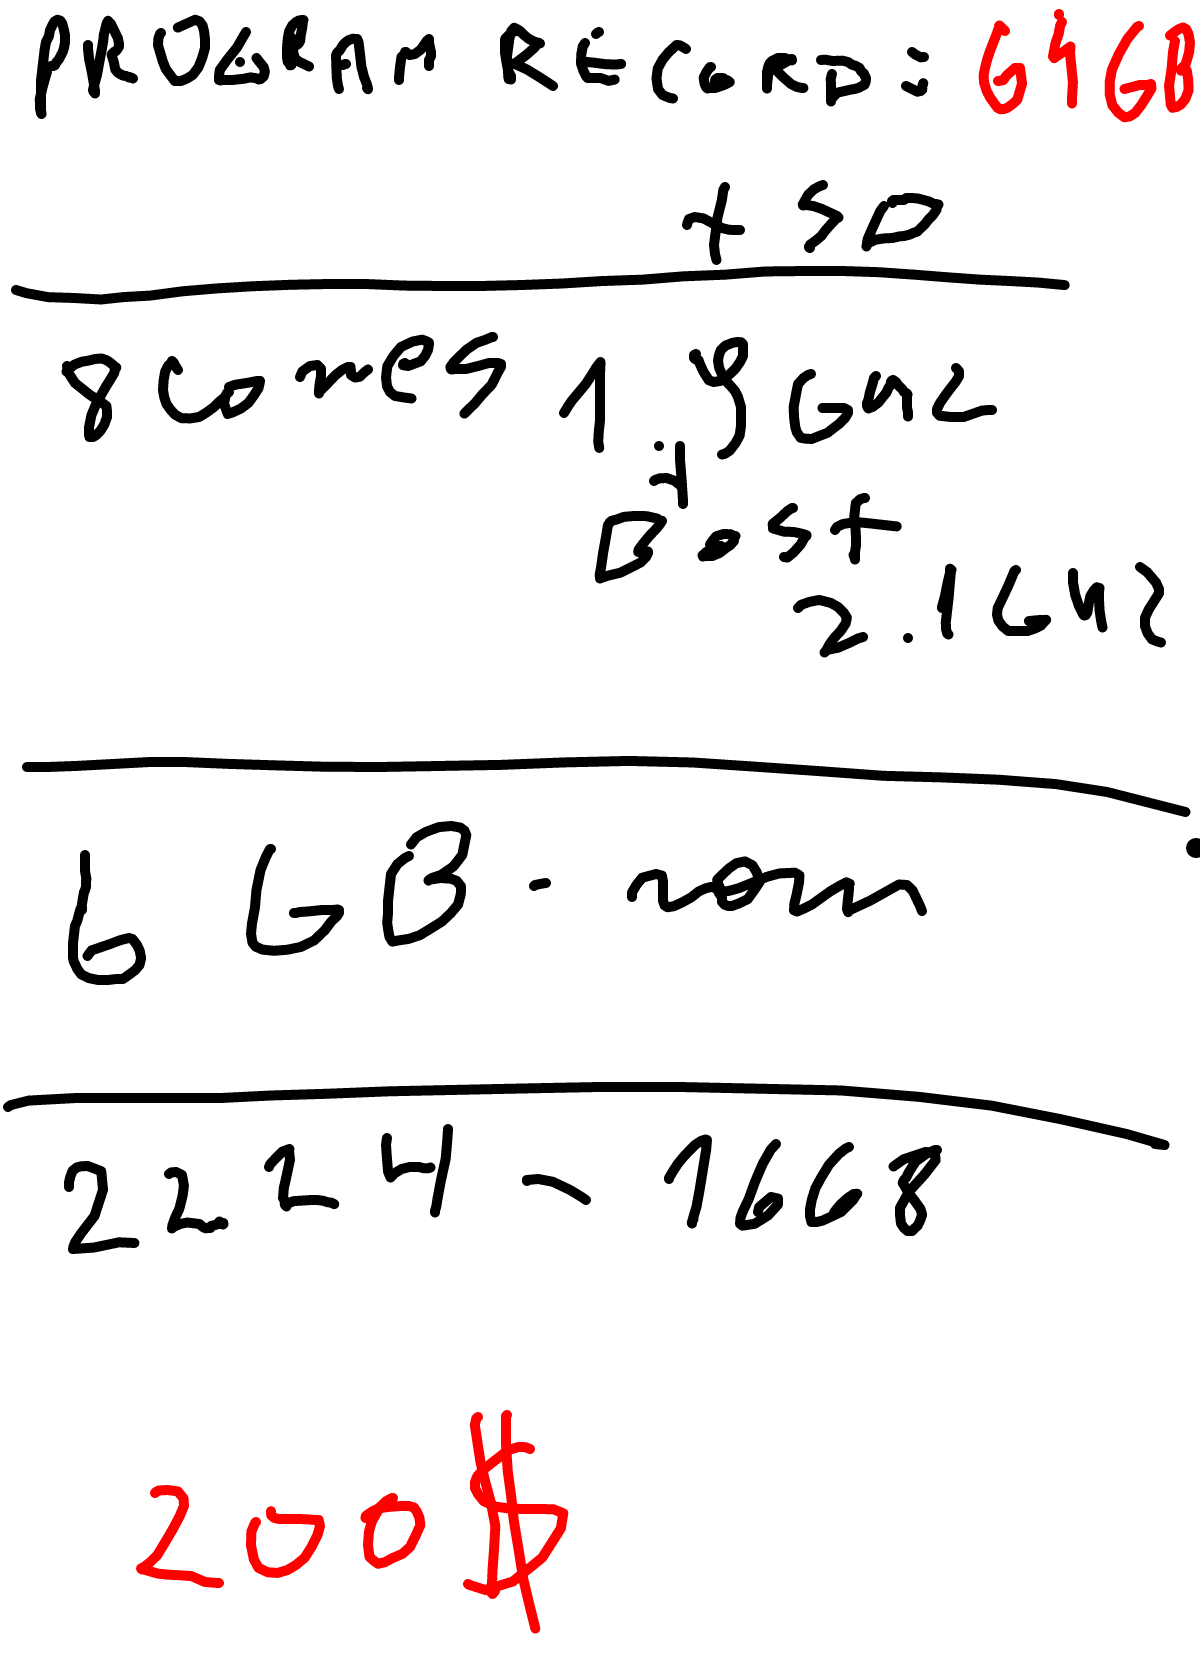 PROGRAM RECORD: 64GB
+ SD
8 cores 1.9 GHz
Bost
2.1GHz
6 GB - rom
2224 - 1668
200$